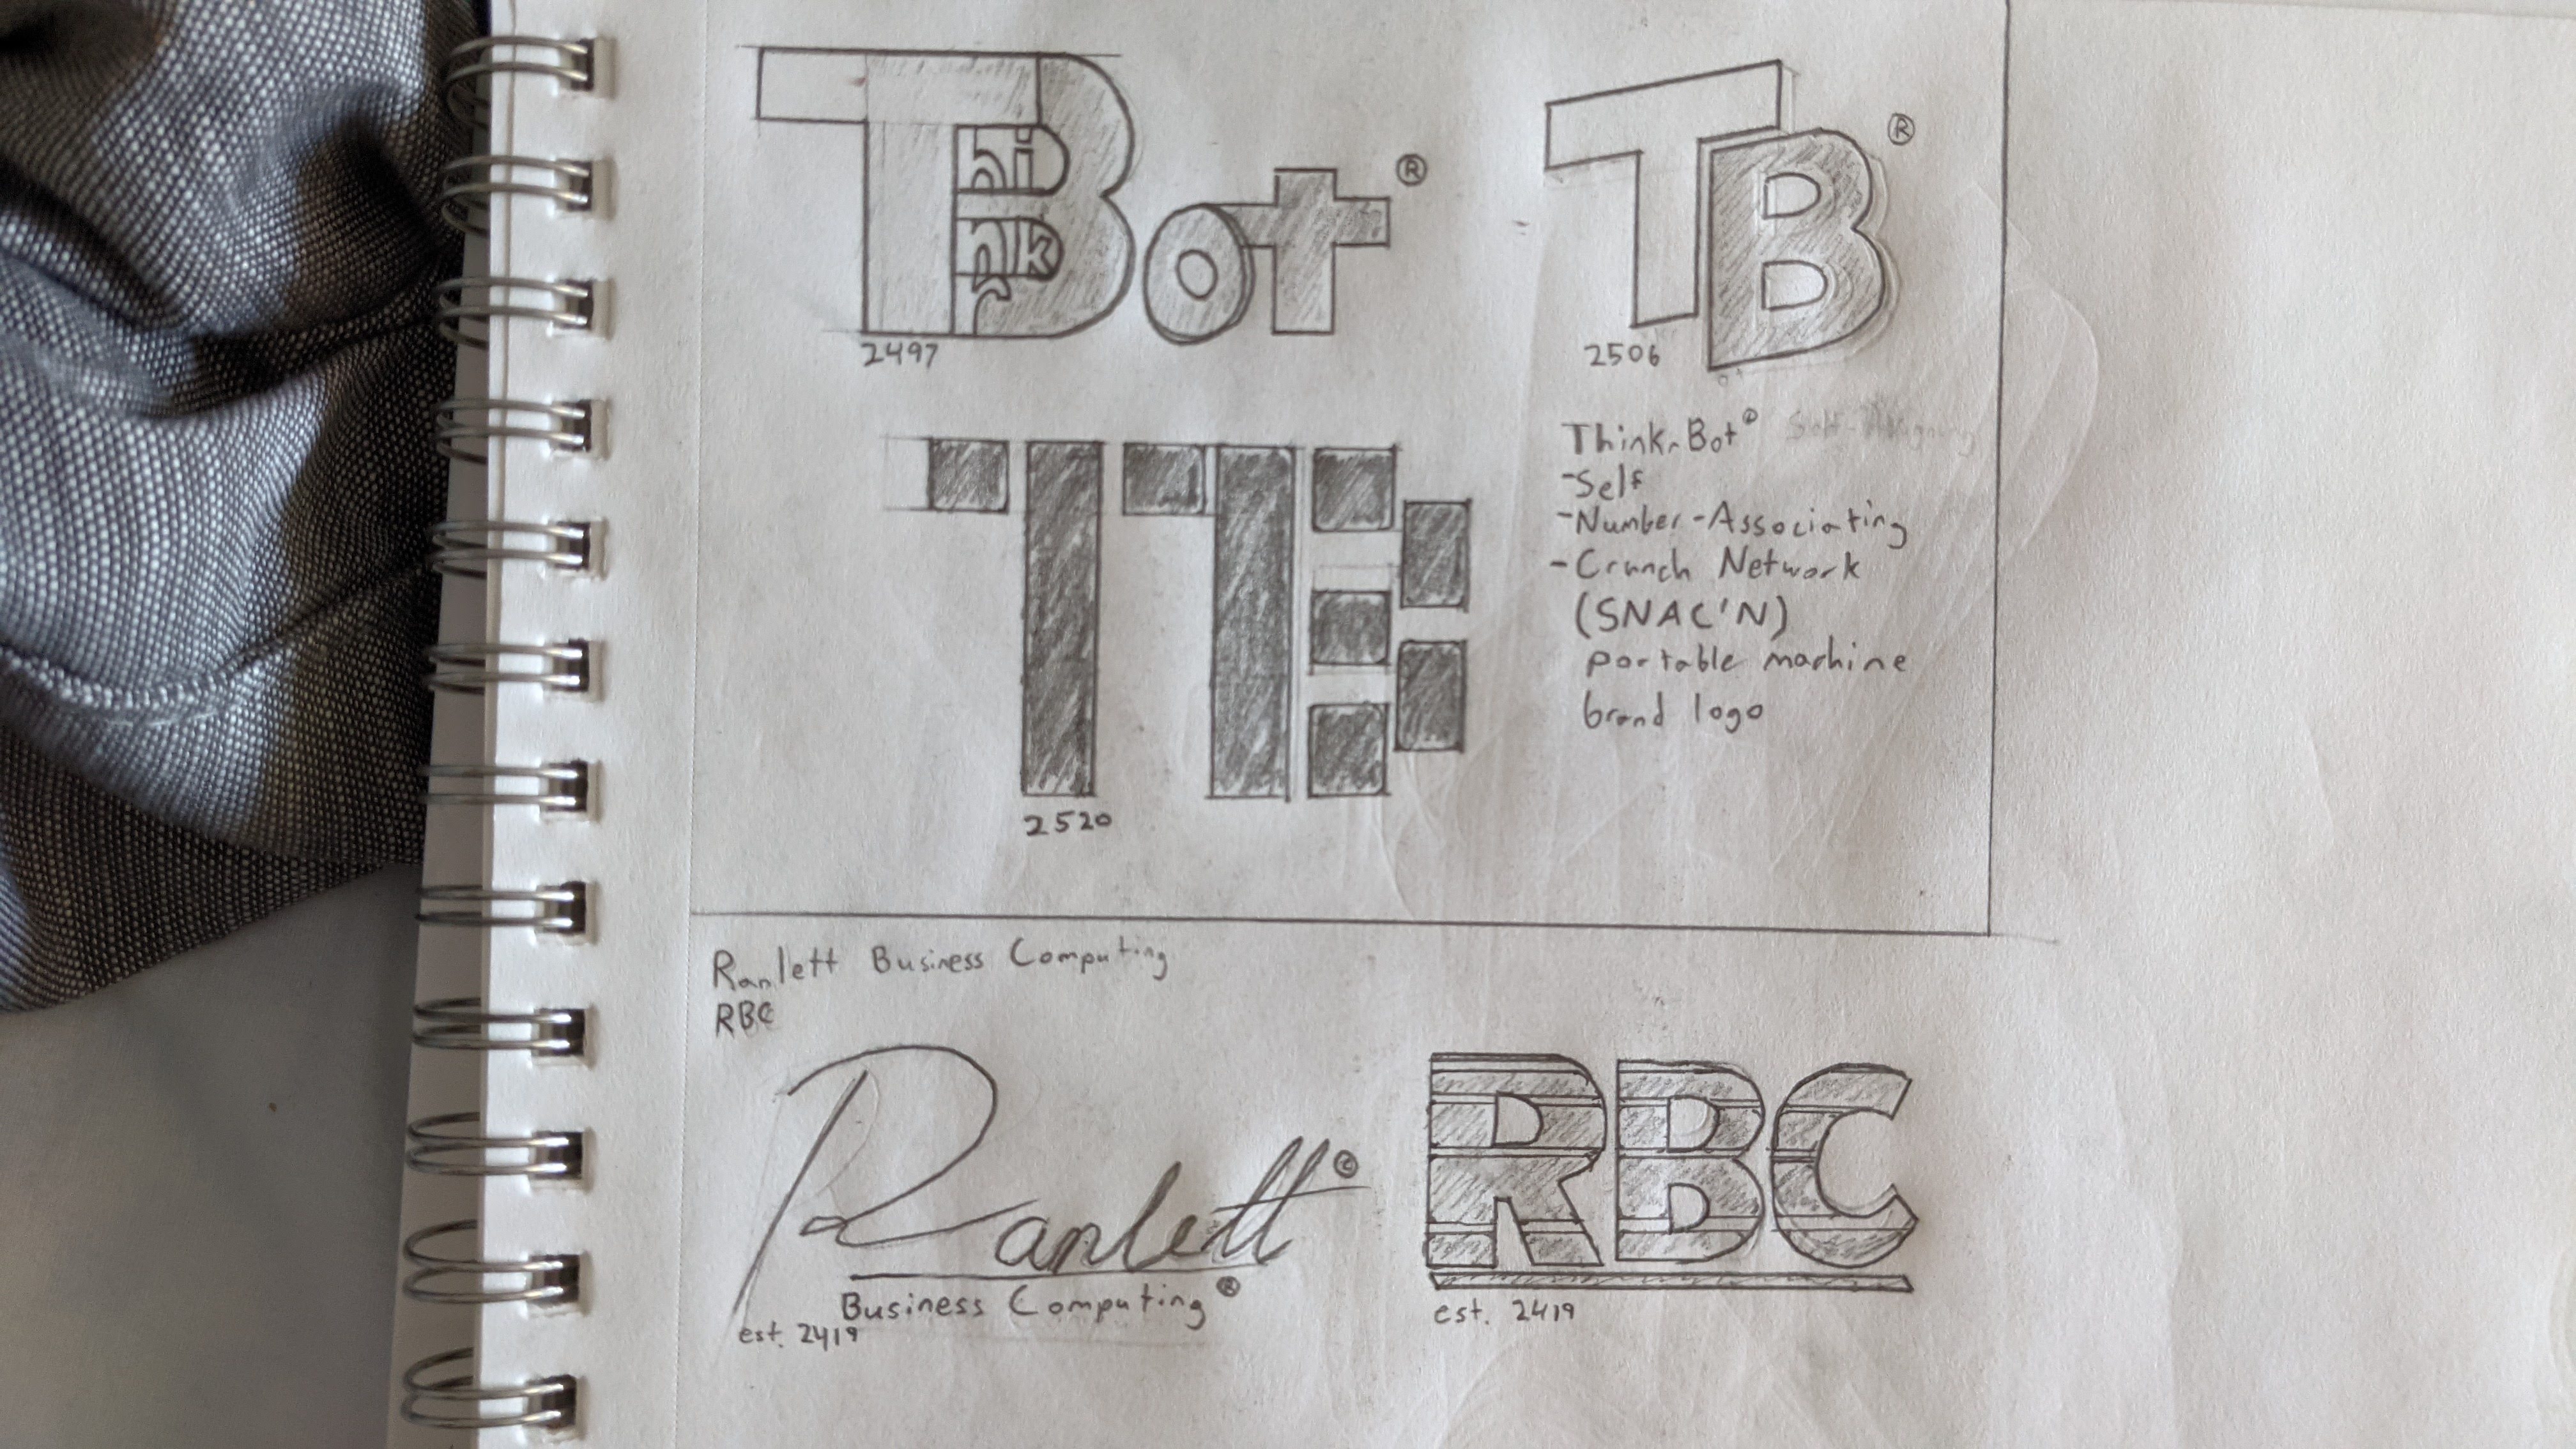 TBot ®
hi
nk
r
2497
TB ®
2506
2520
Thinkr Bot®
-Self
-Number-Associating
-Crunch Network
(SNAC'N)
portable machine
brand logo
Ranlett Business Computing
RBC
Ranlett ©
Business Computing ®
est. 2419
RBC
est. 2419